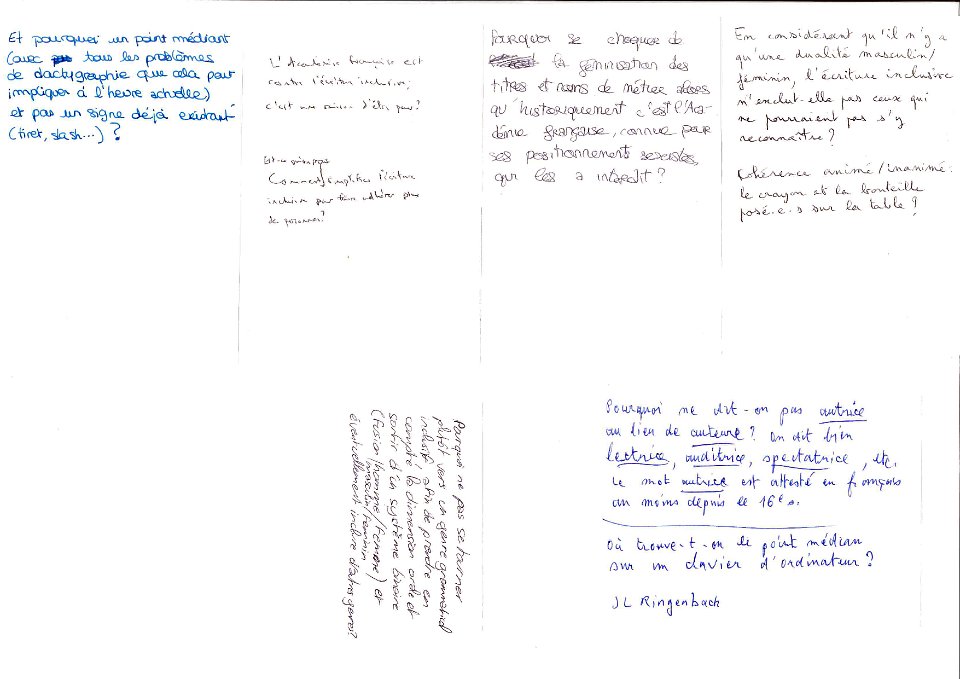 Et pourquoi un point médiant
(avec tous les problèmes
de dactygraphie que cela peut
impliquer à l'heure actuelle)
et pas un signe déjà existant
(tiret, slash...) ?
L'Académie française est
contre l'écriture inclusive,
c'est une raison d'être pour?
Comment simplifier l'écriture
inclusive pour faire adhérer plus
de personnes?
Pourquoi se choquer de
la féminisation des
titres et noms de métier alors
qu'historiquement c'est l'Aca-
démie française, connue pour
ses positionnements sexistes,
qui les a interdit ?
En considérant qu'il n'y a
qu'une dualité masculin/
féminin, l'écriture inclusive
n'exclut-elle pas ceux qui
ne pourraient pas s'y
reconnaître?
Cohérence animé/inanimé:
le crayon et la bouteille
posé.e.s sur la table?
Pourquoi ne pas se tourner
plutôt vers un genre grammatical
inclusif afin de prendre en
compte la dimension orale et
sortir d'un système binaire
(fusion homme/femme) et
masculin/féminin
éventuellement inclure d'autres genres?
Pourquoi ne dit-on pas autrice
au lieu de auteure? On dit bien
lectrice, auditrice, spectatrice, etc.
Le mot autrice est attesté en français
au moins depuis le 16e s.
Où trouve-t-on le point médian
sur un clavier d'ordinateur?
JL Ringenbach